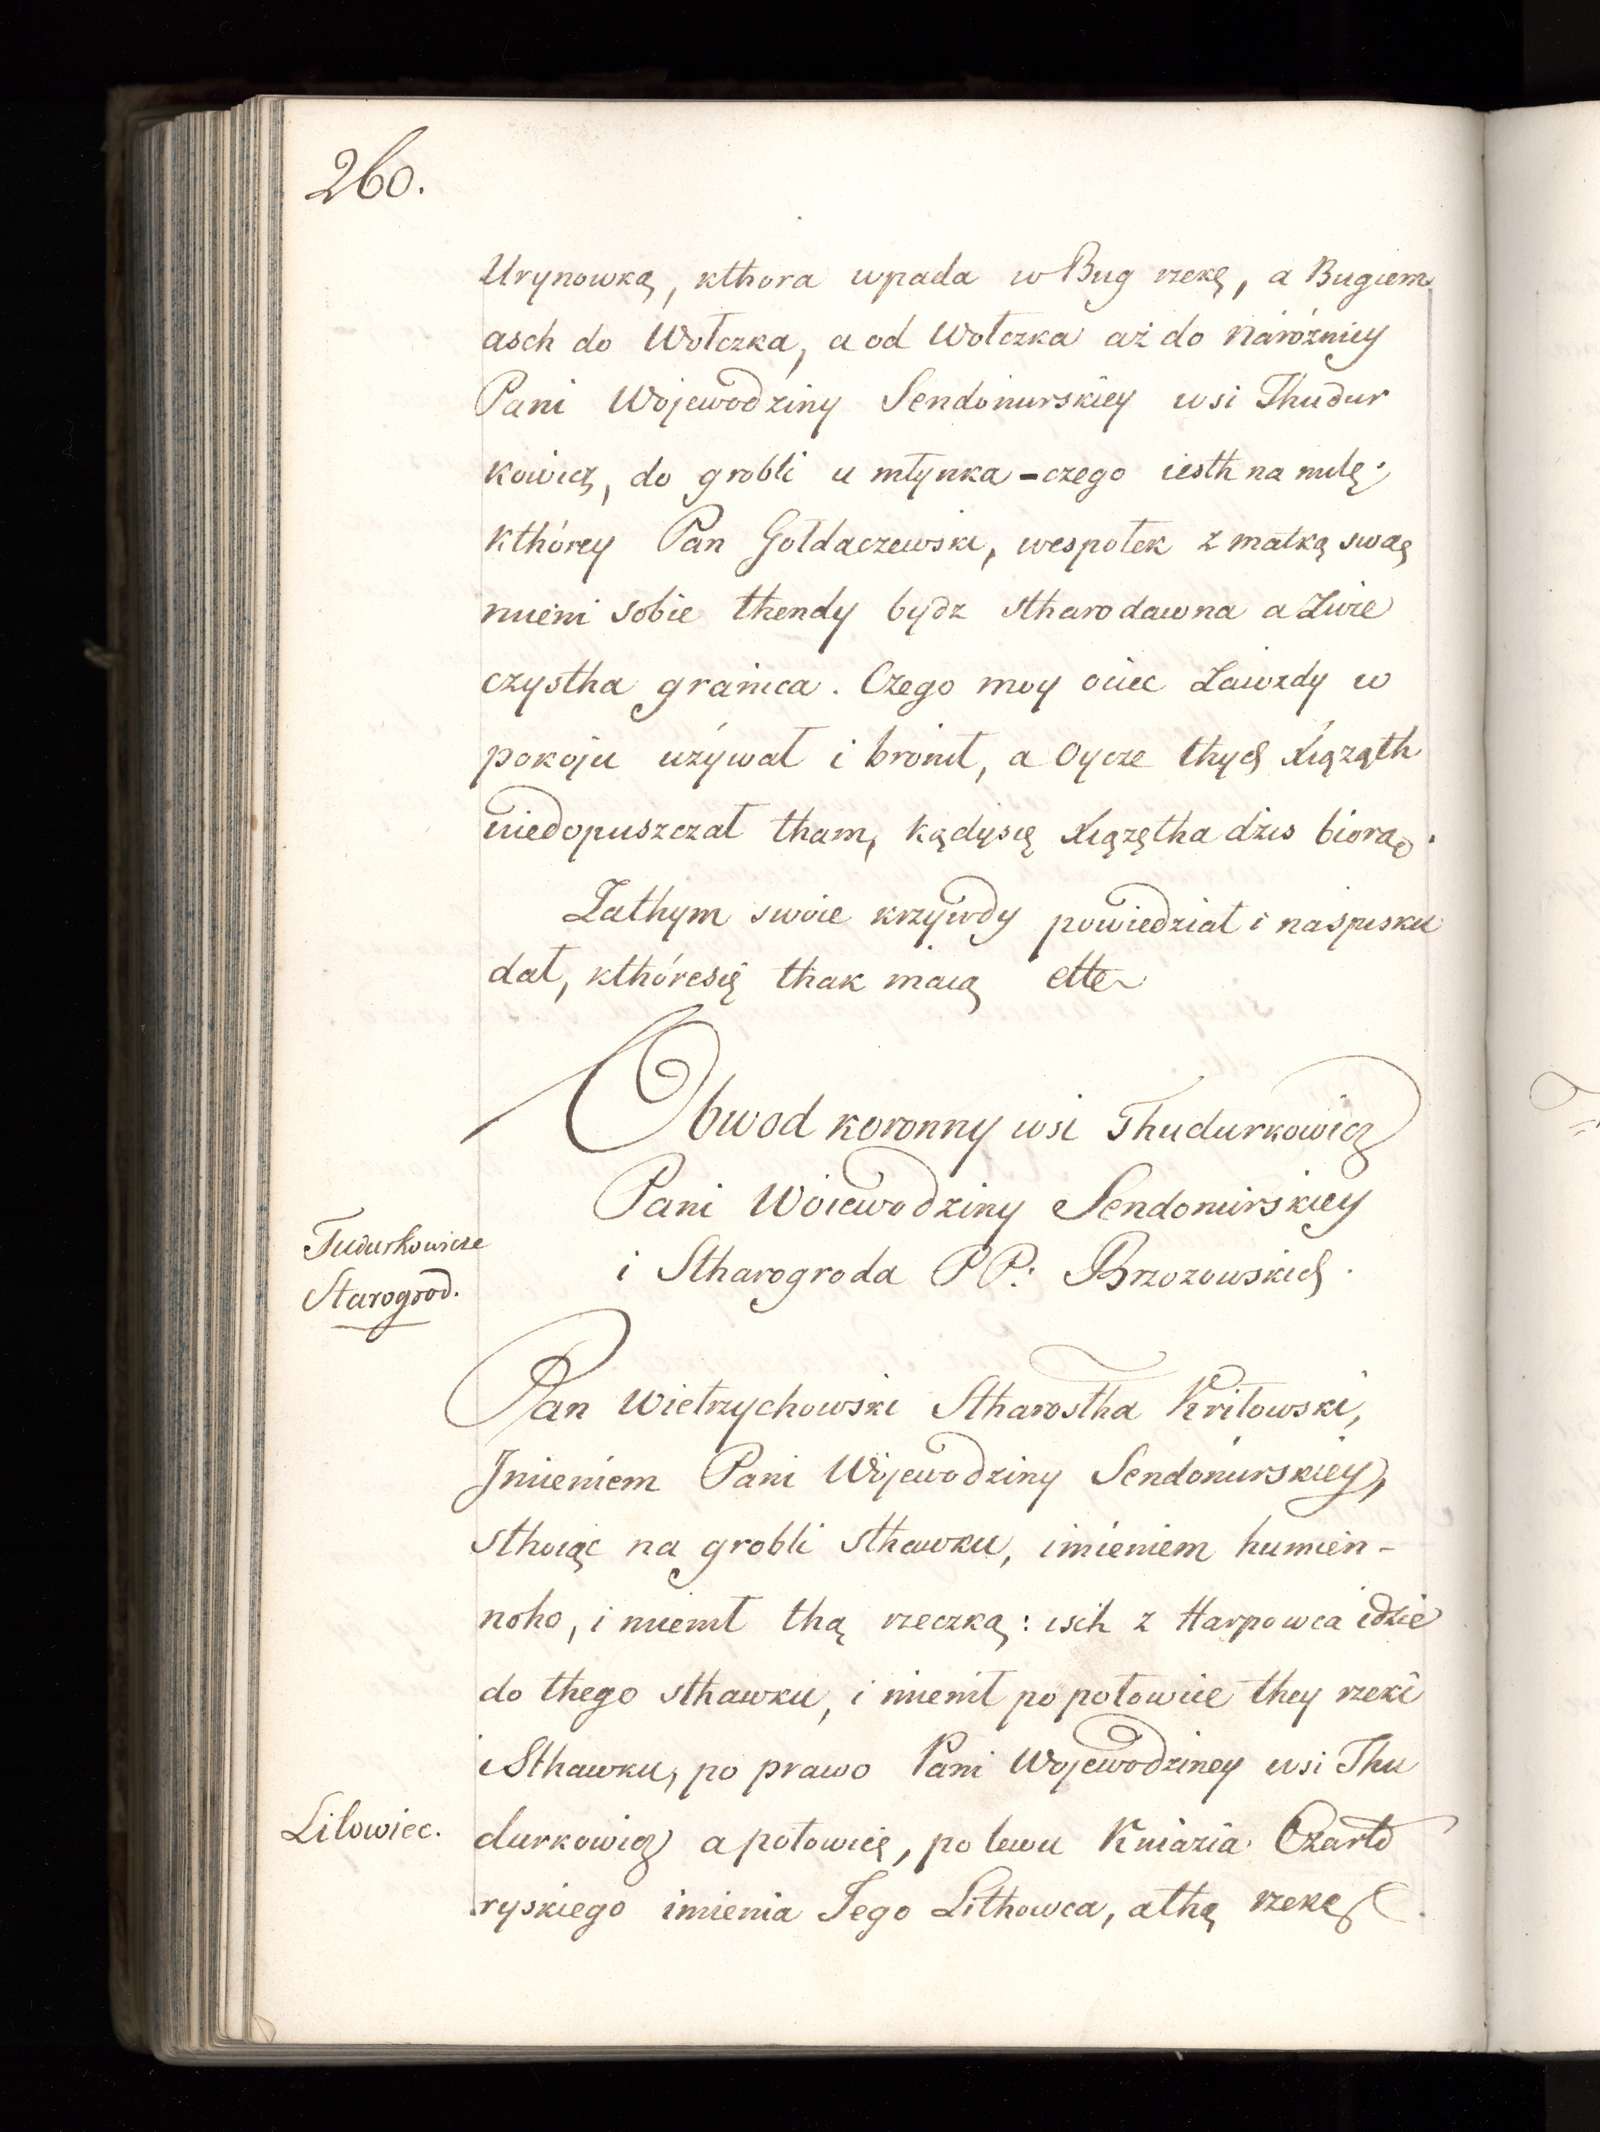 260.
Urynowką, kthora wpada w Bug rzekę, a Bugiem
asch do Wołczka, a od Wołczka aż do Naróżnicy
Pani Wojewodziny Sendomirskiey wsi Thudur
kowicz, do grobli u młynka - czego iesth na milę.
kthórey Pan Gołdaczewski, wespołek z matką swaę
mieni sobie thendy bydz stharodawna a Zwie
czystha granica. Czego moy ociec Zawzdy w
pokoju używał i bronił, a Oycze thych Xiążąth
niedopuszczał tham, kądysię Xiążętha dzis biorą.
Zathym swoie krzywdy powiedział i naspisku
dał, kthóresię thak maią etto
Obwod koronny wsi Thudurkowicz
Pani Woiewodziny Sendomirskiey
i Stharogroda PP: Brzozowskich.
Tudurkowicze
Starogrod.
Pan Wietrzychowski Stharostha Kriłowski,
Imieniem Pani Wojewodziny Sendomirskiey,
sthoiąc na grobli sthawku, imieniem humien-
noho, i mienił thą rzeczką: isch z Harpowca idzie
do thego sthawku, i mienił po połowice they rzeki
i Sthawku, po prawo Pani Wojewodziney wsi Thu
Litowiec.
durkowicz a połowicę, po lewu Kniazia Czarto
ryskiego imienia Jego Lithowca, a thą rzekę